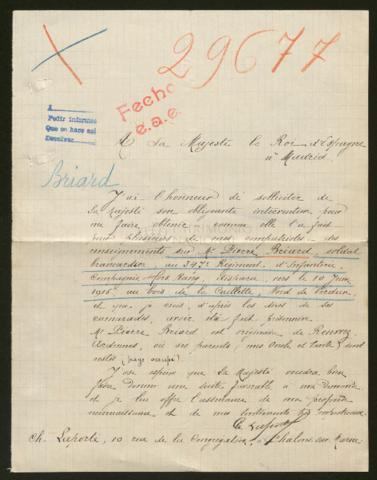 29677
A
Pedir informes
Que se hace así
Devolver
Fecho
e.a.e.
A Sa Majesté le Roi d'Espagne
à Madrid.
Briard
J'ai l'honneur de solliciter de
Sa Majesté son obligeante intervention pour
me faire obtenir comme elle l'a fait
pour plusieurs de mes compatriotes des
renseignements sur Mr Pierre Briard, soldat
brancardier, au 347e Régiment d'Infanterie
Compagnie hors Rang, disparu vers le 10 Juin
1916 au bois de la Caillette, Nord de Verdun
et que je crois, d'après les dires de ses
camarades, avoir été fait prisonnier.
Mr Pierre Briard est originaire de Renwez
Ardennes, où ses parents, mes Oncle et Tante, sont
restés (pays occupé)
J'ose espérer que Sa Majesté voudra bien
faire donner une suite favorable à ma demande
et je lui offre l'assurance de ma profonde
reconnaissance et de mes sentiments respectueux.
Ch. Laporte
Ch. Laporte, 10 rue de la Congrégation, à Chalons sur Marne